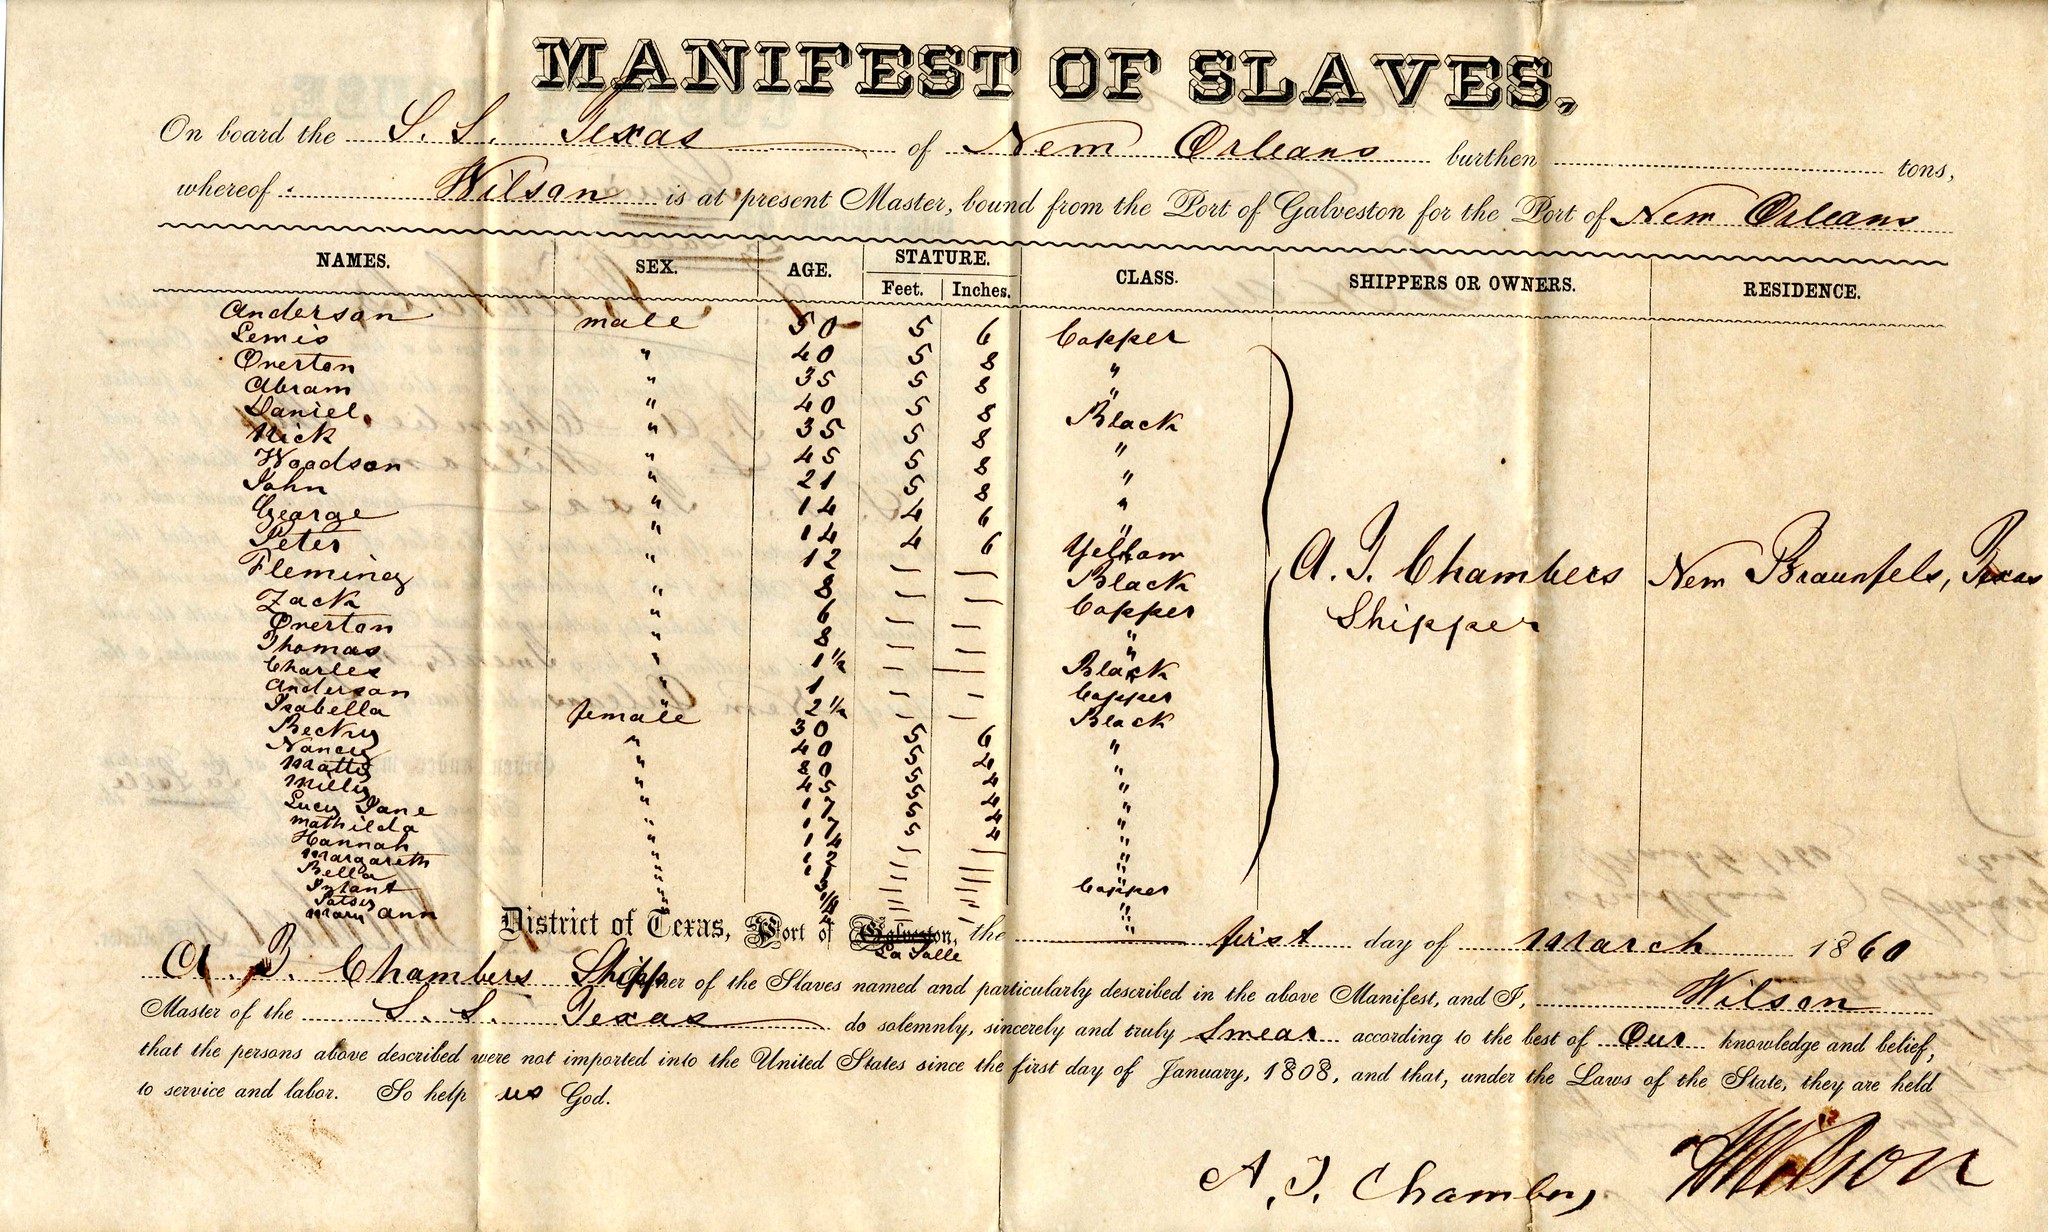 MANIFEST OF SLAVES,
On board the S. S. Texas of New Orleans burthen tons,
whereof Wilson is at present Master, bound from the Port of Galveston for the Port of New Orleans
NAMES. SEX. AGE. STATURE. Feet. Inches. CLASS. SHIPPERS OR OWNERS. RESIDENCE.
Anderson male 50 5 6 Copper
Lewis " 40 5 8 "
Overton " 35 5 8 "
Abram " 40 5 8 Black
Daniel " 35 5 8 "
Nick " 45 5 8 "
Woodson " 21 5 8 "
John " 14 4 6 "
George " 14 4 6 Yellow
Peter " 12 — — Black
A. T. Chambers New Braunfels, Texas
Shipper
Fleming " 8 — — Copper
Zack " 6 — — "
Overton " 8 — — "
Thomas " 1½ — — Black
Charles " 1 — — Copper
Anderson " 2½ — — Black
Isabella female 30 5 6 "
Becky " 40 5 4 "
Nancy " 80 5 4 "
Matty " 45 5 4 "
Milly " 17 5 4 "
Lucy Jane " 17 5 4 "
Mathilda " 14 — — "
Hannah "
Margareth "
Bella "
Infant "
Patsey "
Mary Ann "
Copper
District of Texas, Port of Galveston, the first day of March 1860
La Salle
A. T. Chambers Shipper of the Slaves named and particularly described in the above Manifest, and I, Wilson
Master of the S. S. Texas do solemnly, sincerely and truly Swear according to the best of Our knowledge and belief,
that the persons above described were not imported into the United States since the first day of January, 1808, and that, under the Laws of the State, they are held
to service and labor. So help us God.
A. T. Chambers Wilson